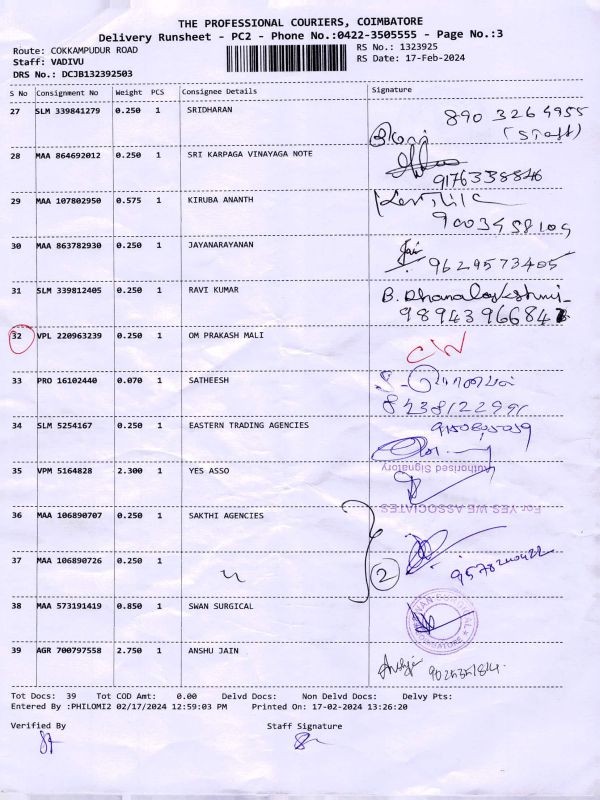 THE PROFESSIONAL COURIERS, COIMBATORE
Delivery Runsheet - PC2 - Phone No.:0422-3505555 - Page No.:3
Route: COKKAMPUDUR ROAD
RS No.: 1323925
Staff: VADIVU
RS Date: 17-Feb-2024
DRS No.: DCJB132392503
S No Consignment No Weight PCS Consignee Details Signature
27 SLM 339841279 0.250 1 SRIDHARAN 890 3264955
(Staff)
28 MAA 864692012 0.250 1 SRI KARPAGA VINAYAGA NOTE
9176338846
29 MAA 107802950 0.575 1 KIRUBA ANANTH
9003458109
30 MAA 863782930 0.250 1 JAYANARAYANAN Jai
9629573405
31 SLM 339812405 0.250 1 RAVI KUMAR B. Dhanalakshmi
9894396684
32 VPL 220963239 0.250 1 OM PRAKASH MALI CW
33 PRO 16102440 0.070 1 SATHEESH
34 SLM 5254167 0.250 1 EASTERN TRADING AGENCIES
Authorised Signatory
35 VPM 5164828 2.300 1 YES ASSO
For YES WE ASSOCIATES
36 MAA 106890707 0.250 1 SAKTHI AGENCIES
37 MAA 106890726 0.250 1 2
38 MAA 573191419 0.850 1 SWAN SURGICAL
COIMBATORE
39 AGR 700797558 2.750 1 ANSHU JAIN
Tot Docs: 39 Tot COD Amt: 0.00 Delvd Docs: Non Delvd Docs: Delvy Pts:
Entered By :PHILOMI2 02/17/2024 12:59:03 PM Printed On: 17-02-2024 13:26:20
Verified By Staff Signature